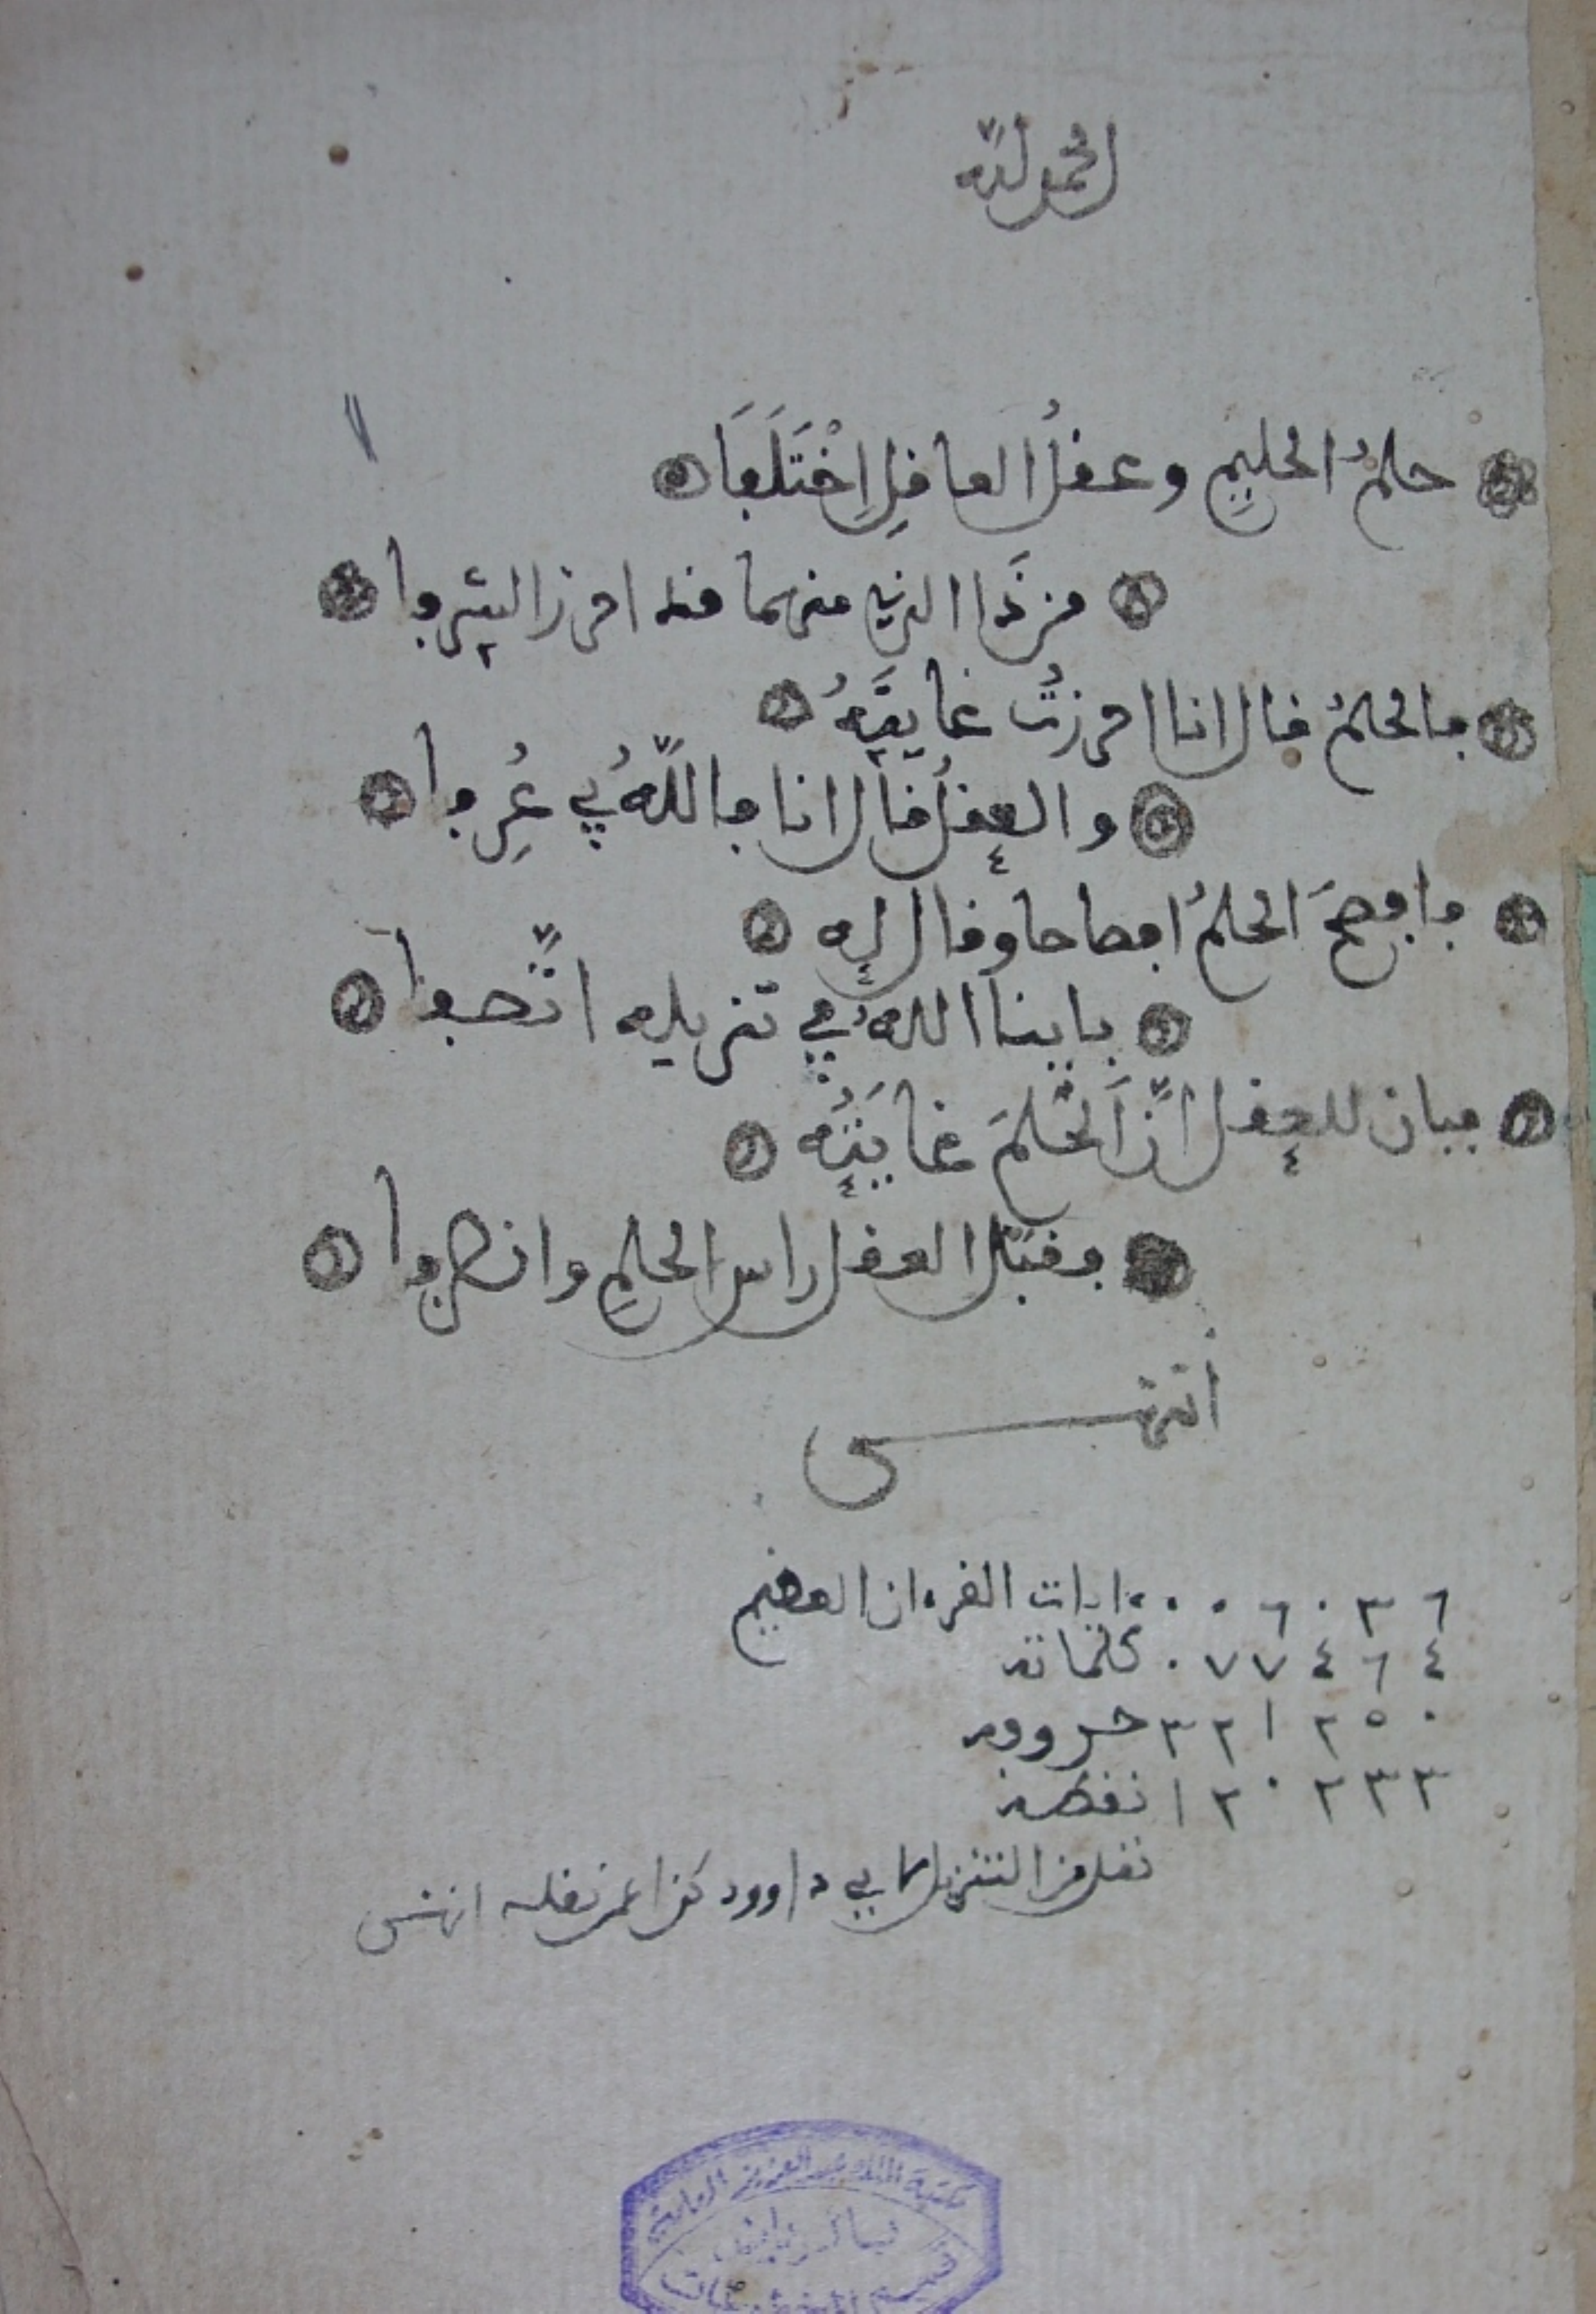 الحمد لله
حلمُ الحليمِ وعقلُ العاقلِ اِخْتَلَفَا
من ذَا الذي منهما قد احرز الشرفا
فالحلمُ قال انا احرزتُ غايتَهُ
والعقلُ قال انا فاللّهُ بي عُرِفا
فافصحَ الحلمُ افصاحا وقال له
باينا اللهُ في تنزيله اتّصفا
فبان للعقل انّ الحلمَ غايَتُه
فقبّل العقل راس الحلمِ وانصرفا
انتهى
٠٠٦٠٣٦ ايات القرءان العظيم
٠٧٧٤٦٤ كلماته
٣٢١٢٥٠ حروفه
١٢٠٢٣٣ نقطه
نقل من التنزيل لابي داوود كذا عمن نقله انتهى
مكتبة الملك عبد العزيز العامة
قسم المخطوطات